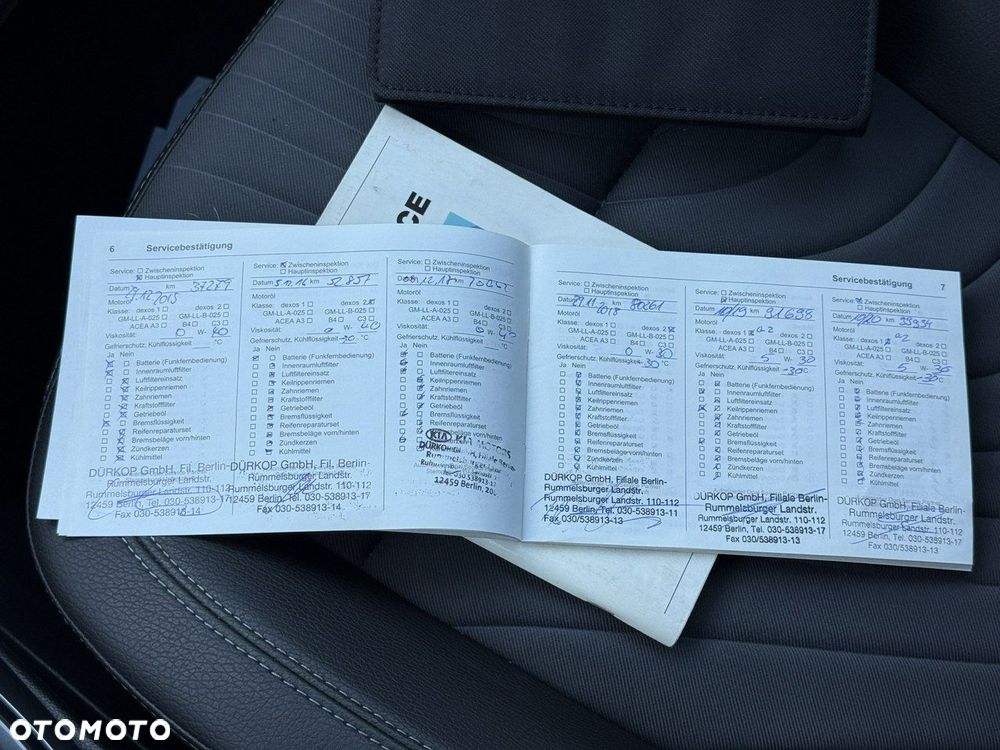 CE
6 Servicebestätigung
Service: Zwischeninspektion
Hauptinspektion
Datum km 37279
Motoröl
Klasse: dexos 1 dexos 2
GM-LL-A-025 GM-LL-B-025
ACEA A3 B4 C3
Viskosität: 0 W-
Gefrierschutz, Kühlflüssigkeit °C
Ja Nein
Batterie (Funkfernbedienung)
Innenraumluftfilter
Luftfiltereinsatz
Keilrippenriemen
Zahnriemen
Kraftstofffilter
Getriebeöl
Bremsflüssigkeit
Reifenreparaturset
Bremsbeläge vorn/hinten
Zündkerzen
Kühlmittel
DÜRKOP GmbH, Fil. Berlin-
Rummelsburger Landstr. 110-112
12459 Berlin, Tel. 030-538913-17
Fax 030/538913-14
Service: Zwischeninspektion
Hauptinspektion
Datum km 52857
Motoröl
Klasse: dexos 1 dexos 2
GM-LL-A-025 GM-LL-B-025
ACEA A3 B4 C3
Viskosität: W- 40
Gefrierschutz, Kühlflüssigkeit -30 °C
Ja Nein
Batterie (Funkfernbedienung)
Innenraumluftfilter
Luftfiltereinsatz
Keilrippenriemen
Zahnriemen
Kraftstofffilter
Getriebeöl
Bremsflüssigkeit
Reifenreparaturset
Bremsbeläge vorn/hinten
Zündkerzen
Kühlmittel
DÜRKOP GmbH, Fil. Berlin-
Rummelsburger Landstr. 110-112
12459 Berlin, Tel. 030-538913-17
Fax 030/538913-14
Service: Zwischeninspektion
Hauptinspektion
Datum km
Motoröl
Klasse: dexos 1 dexos 2
GM-LL-A-025 GM-LL-B-025
ACEA A3 B4 C3
Viskosität: W-
Gefrierschutz, Kühlflüssigkeit °C
Ja Nein
Batterie (Funkfernbedienung)
Innenraumluftfilter
Luftfiltereinsatz
Keilrippenriemen
Zahnriemen
Kraftstofffilter
Getriebeöl
Bremsflüssigkeit
Reifenreparaturset
KIA KIA MOTORS
DÜRKOP
12459 Berlin,
Servicebestätigung 7
Service: Zwischeninspektion
Hauptinspektion
Datum 29.11.2018 km 80061
Motoröl
Klasse: dexos 1 dexos 2
GM-LL-A-025 GM-LL-B-025
ACEA A3 B4 C3
Viskosität: 0 W- 30
Gefrierschutz, Kühlflüssigkeit -30 °C
Ja Nein
Batterie (Funkfernbedienung)
Innenraumluftfilter
Luftfiltereinsatz
Keilrippenriemen
Zahnriemen
Kraftstofffilter
Getriebeöl
Bremsflüssigkeit
Reifenreparaturset
Bremsbeläge vorn/hinten
Zündkerzen
Kühlmittel
DÜRKOP GmbH, Filiale Berlin-
Rummelsburger Landstr.
Rummelsburger Landstr. 110-112
12459 Berlin, Tel. 030-538913-11
Fax 030/538913-13
Service: Zwischeninspektion
Hauptinspektion
Datum 10/19 km 91698
Motoröl
Klasse: dexos 1 a2 dexos 2
GM-LL-A-025 GM-LL-B-025
ACEA A3 B4 C3
Viskosität: 5 W- 30
Gefrierschutz, Kühlflüssigkeit -30 °C
Ja Nein
Batterie (Funkfernbedienung)
Innenraumluftfilter
Luftfiltereinsatz
Keilrippenriemen
Zahnriemen
Kraftstofffilter
Getriebeöl
Bremsflüssigkeit
Reifenreparaturset
Bremsbeläge vorn/hinten
Zündkerzen
Kühlmittel
DÜRKOP GmbH, Filiale Berlin-
Rummelsburger Landstr.
Rummelsburger Landstr. 110-112
12459 Berlin, Tel. 030-538913-17
Fax 030/538913-13
Service: Zwischeninspektion
Hauptinspektion
Datum 10/20 km 99934
Motoröl
Klasse: dexos 1 a2 dexos 2
GM-LL-A-025 GM-LL-B-025
ACEA A3 B4 C3
Viskosität: 5 W- 30
Gefrierschutz, Kühlflüssigkeit -30 °C
Ja Nein
Batterie (Funkfernbedienung)
Innenraumluftfilter
Luftfiltereinsatz
Keilrippenriemen
Zahnriemen
Kraftstofffilter
Getriebeöl
Bremsflüssigkeit
Reifenreparaturset
Bremsbeläge vorn/hinten
Zündkerzen
Kühlmittel
DÜRKOP GmbH, Filiale Berlin-
Rummelsburger Landstr.
Rummelsburger Landstr. 110-112
12459 Berlin, Tel. 030-538913-17
Fax 030/538913-13
OTOMOTO